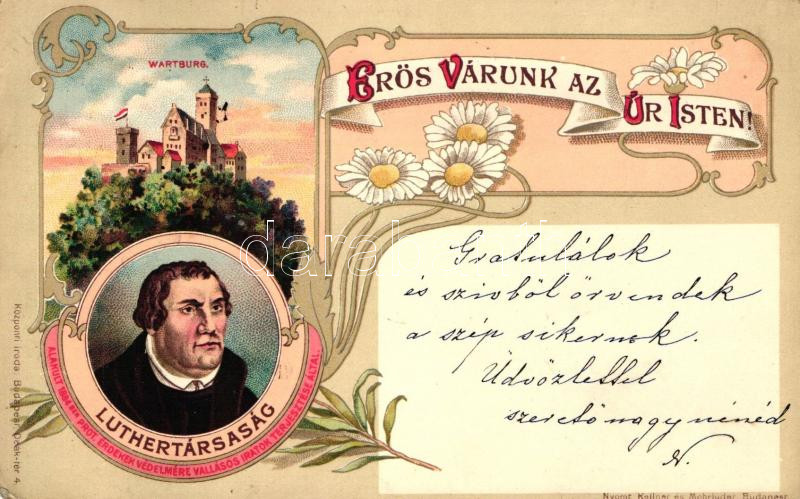 WARTBURG.
ERŐS VÁRUNK AZ
ÚR ISTEN!
Gratulálok
és szivből örvendek
a szép sikernek.
Üdvözlettel
szerető nagynénéd
N.
LUTHERTÁRSASÁG
ALAKULT 1884-BEN PROT. ÉRDEKEK VÉDELMÉRE VALLÁSOS IRATOK TERJESZTÉSE ÁLTAL.
Központi iroda: Budapest, Deák-tér 4.
Nyomt. Kellner és Mohrlüder, Budapest